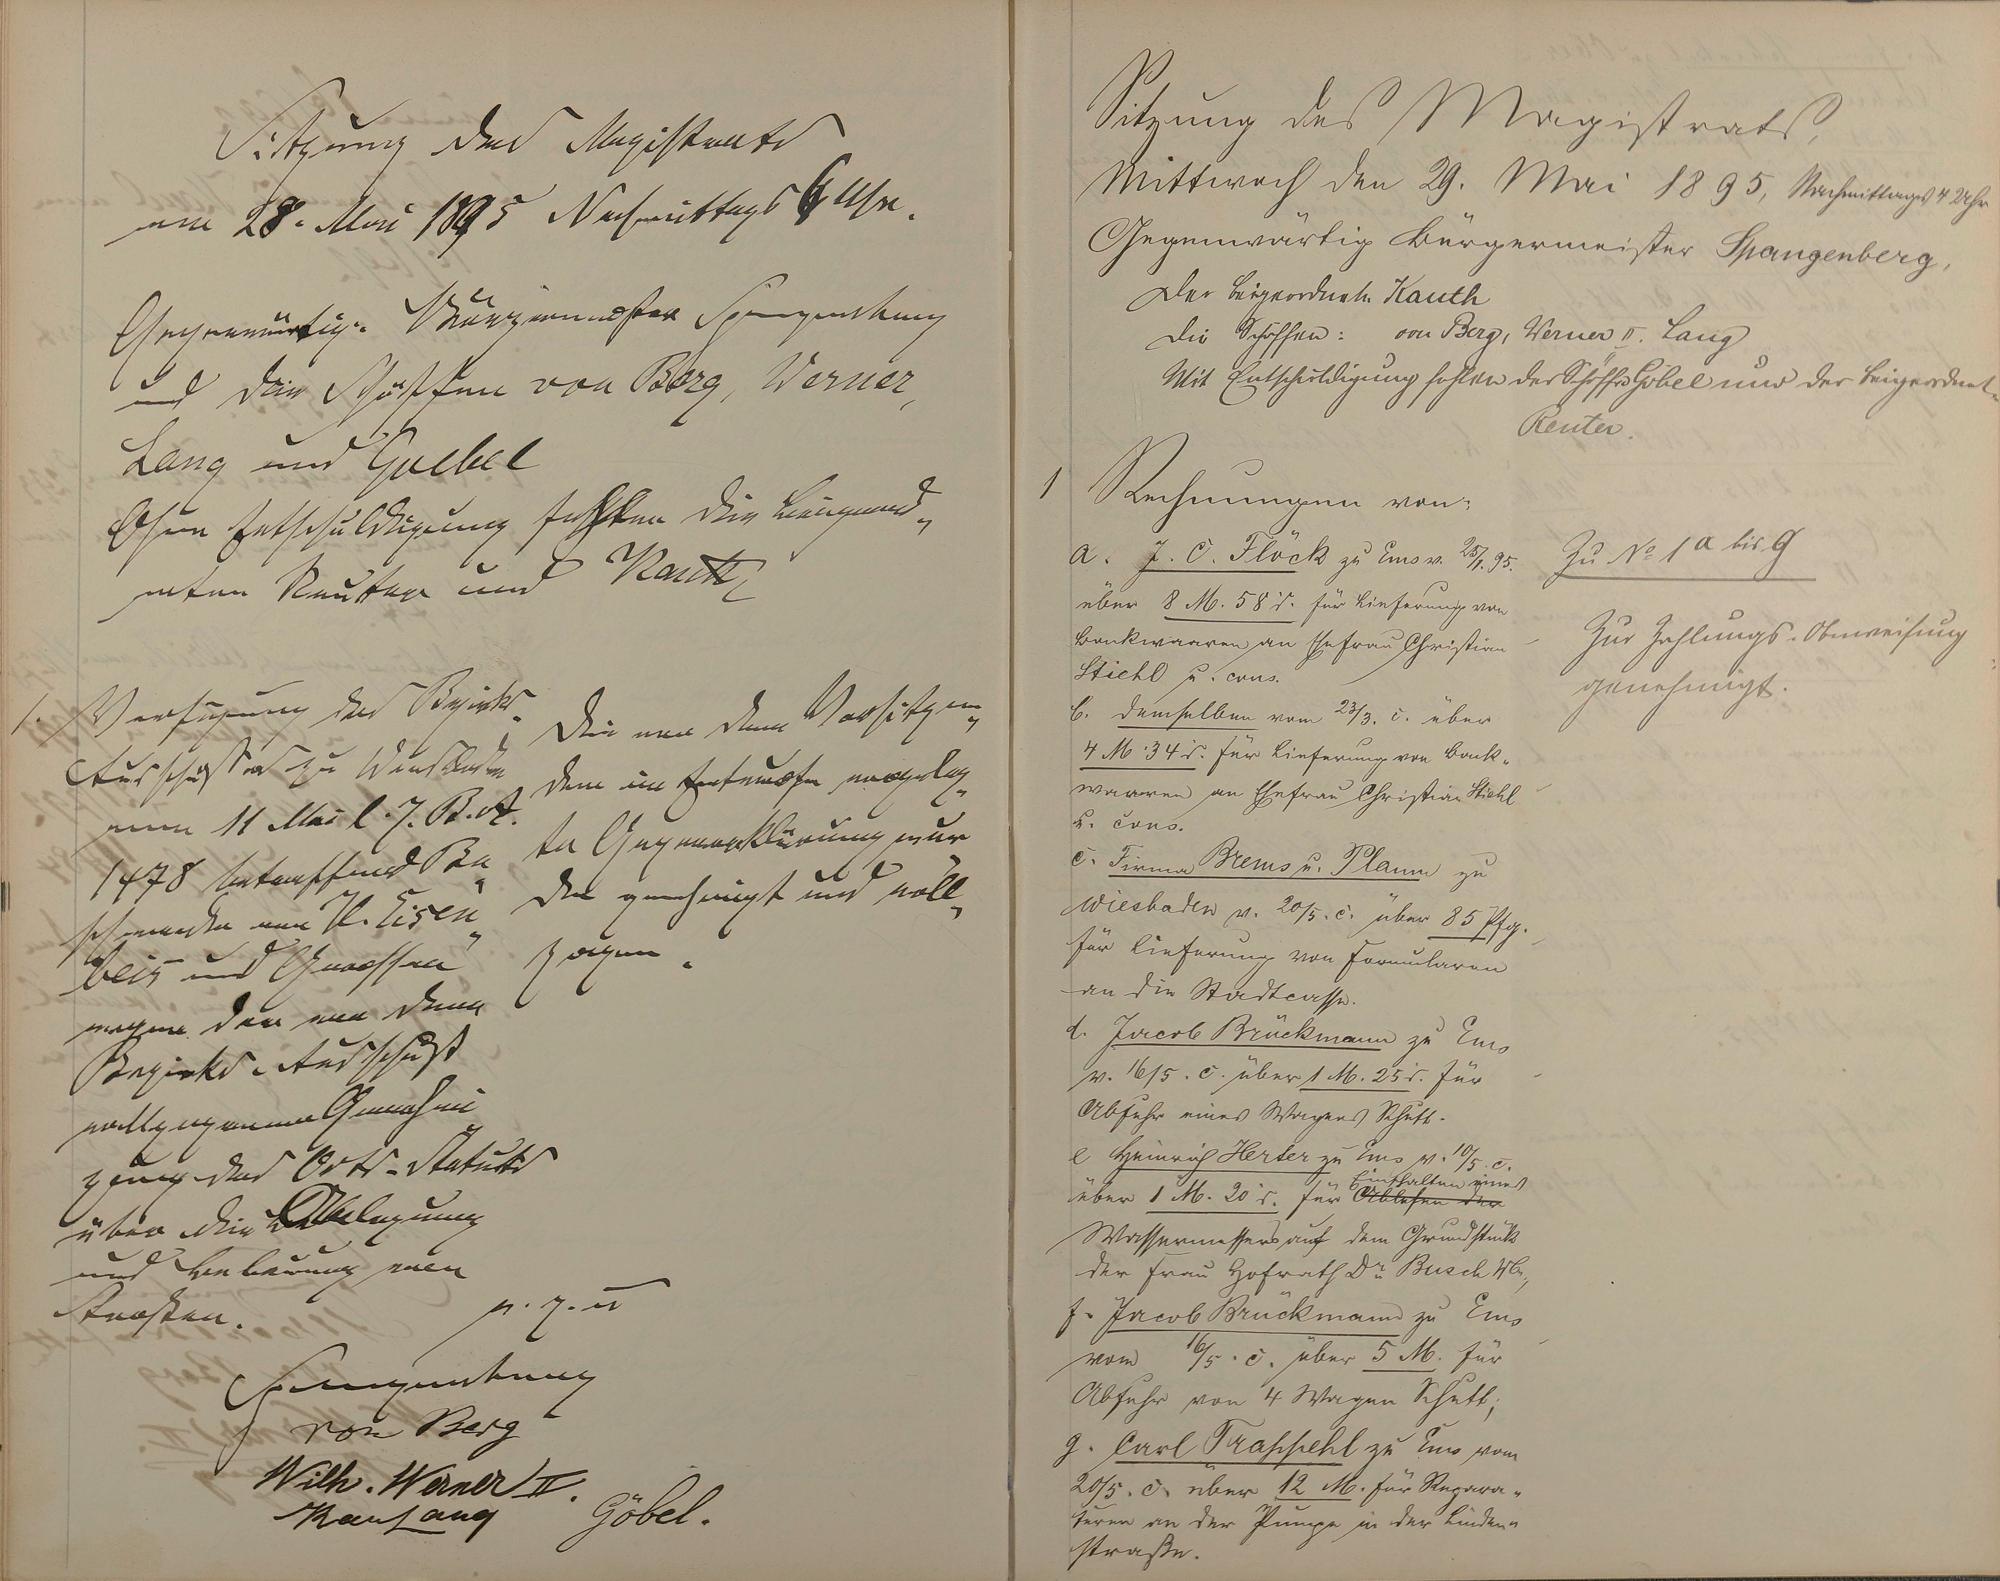 Sitzung des Magistrats
am 28. Mai 1895 Nachmittags 6 Uhr.
Gegenwärtig: Bürgermeister Spangenberg
und die Schöffen von Berg, Werner,
Lang und Goebel
Ohne Entschuldigung fehlten die Beigeord„
neten Reuter und Kauth
1. Verfügung des Bezirks„
Ausschußes zu Wiesbaden
vom 11 Mai l. J. B. A.
1478 betreffend Be„
schwerde von H. Eisen„
beis und Genossen
wegen der von dem
Bezirks-Ausschuß
vollzogenen Genehmi
gung des Orts-Statuts
über die Anlegung
und Bebauung von
Straßen.
Die von dem Vorsitzen„
den im Entwurfe vorgeleg„
te Gegenerklärung wur
de genehmigt und voll„
zogen.
v. g. u
Spangenberg
von Berg
Wilh. Werner II.
Karl Lang
Göbel.
Sitzung des Magistrats,
Mittwoch den 29. Mai 1895, Nachmittags 4 Uhr
Gegenwärtig Bürgermeister Spangenberg,
Der Beigeordnete Kauth
Die Schöffen: von Berg, Werner II. Lang
Mit Entschuldigung fehlen der Schöffe Göbel und der Beigeordnet„
Reuter.
1 Rechnungen von:
a. J. C. Flöck zu Ems v. 25/1. 95.
über 8 M. 58 d. für Lieferung von
Backwaaren an Ehefrau Christian
Stiehl u. cons.
b. demselben vom 23/3. c. über
4 M. 34 d. für Lieferung von Back„
waaren an Ehefrau Christian Stiehl
u. cons.
c. Firma Brems u. Plaum zu
Wiesbaden v. 20/5. c. über 85 Pfg.
für Lieferung von Formularen
an die Stadtcasse.
d. Jacob Brückmann zu Ems
v. 16/5. c. über 1 M. 25 d. für
Abfuhr eines Wagens Schutt.
e Heinrich Herter zu Ems v. 10/5. c.
über 1 M. 20 d. für Ablesen der Einschalten eines
Wassermessers auf dem Grundstück
der Frau Hofrath Dr. Busch Wb.,
f. Jacob Brückmann zu Ems
vom 16/5. c. über 5 M. für
Abfuhr von 4 Wagen Schutt;
g. Carl Traßpehl zu Ems vom
20/5. c. über 12 M. für Repara„
turen an der Pumpe in der Linden„
straße.
Zu No 1 a bis g
Zur Zahlungs-Anweisung
genehmigt.